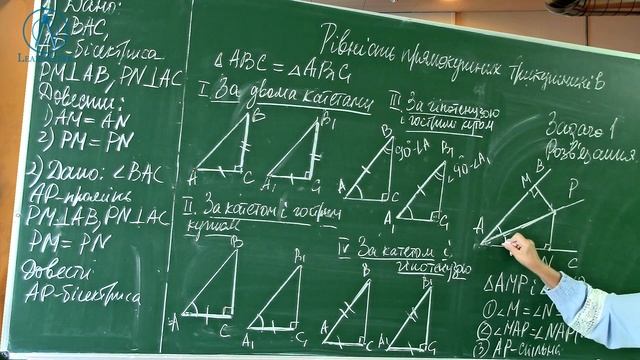 1) Дано:
∠BAC,
AP-бісектриса
PM⊥AB, PN⊥AC
Довести:
1) AM = AN
2) PM = PN
2) Дано: ∠BAC
AP-промінь
PM⊥AB, PN⊥AC
PM = PN
Довести
AP-бісектриса
Рівність прямокутних трикутників
△ABC = △A₁B₁C₁
I. За двома катетами
B
A
C
B₁
A₁
C₁
II. За катетом і гострим
кутом
B
A
C
B₁
A₁
C₁
III. За гіпотенузою
і гострим кутом
B
90-∠A
A
C
B₁
90-∠A₁
A₁
C₁
IV За катетом і
гіпотенузою
B
A
C
B₁
A₁
C₁
Задача 1
Розв'язання
B
M
P
A
N
C
△AMP і
① ∠M = ∠N
② ∠MAP = ∠NAP
③ AP-спільна